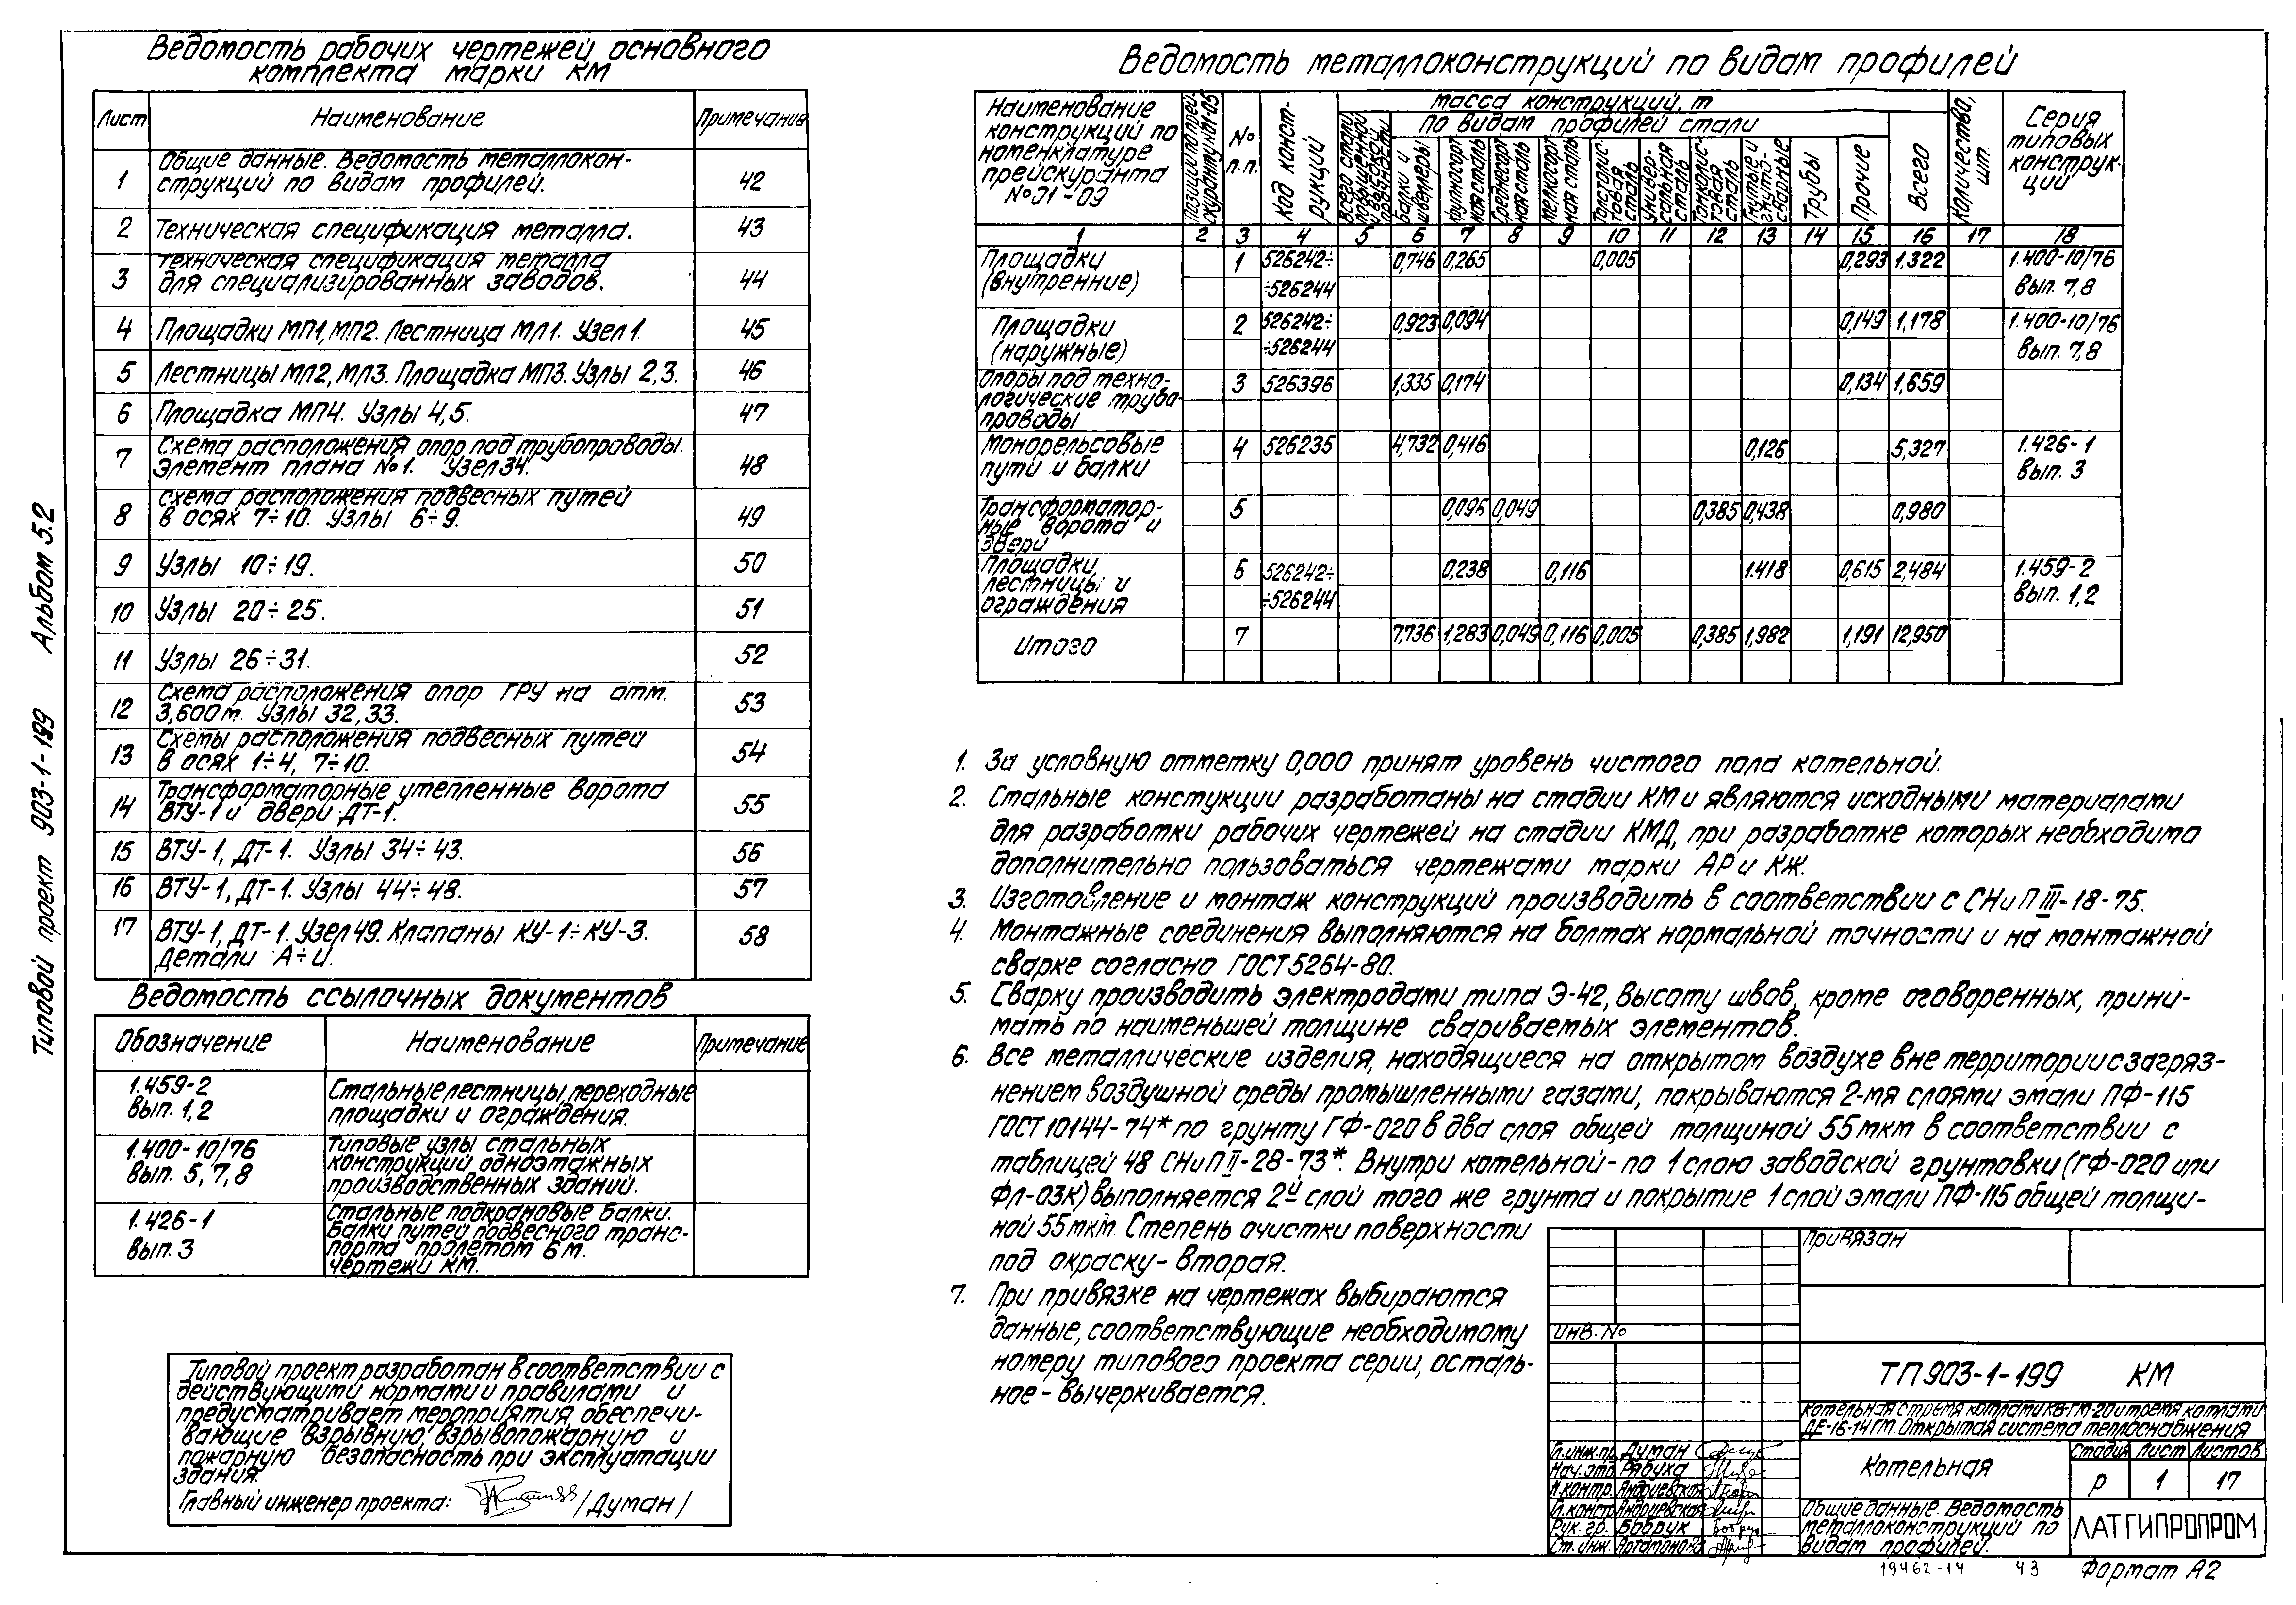 Ведомость рабочих чертежей основного
комплекта марки КМ
Лист Наименование Примечание
1 Общие данные. Ведомость металлокон-
струкций по видам профилей. 42
2 Техническая спецификация металла. 43
3 Техническая спецификация металла
для специализированных заводов. 44
4 Площадки МП1, МП2. Лестница МЛ1. Узел 1. 45
5 Лестницы МЛ2, МЛ3. Площадка МП3. Узлы 2,3. 46
6 Площадка МП4. Узлы 4,5. 47
7 Схема расположения опор под трубопроводы.
Элемент плана №1. Узел 34. 48
8 Схема расположения подвесных путей
в осях 7÷10. Узлы 6÷9. 49
9 Узлы 10÷19. 50
10 Узлы 20÷25. 51
11 Узлы 26÷31. 52
12 Схема расположения опор ГРУ на отм.
3,600м. Узлы 32,33. 53
13 Схемы расположения подвесных путей
в осях 1÷4, 7÷10. 54
14 Трансформаторные утепленные ворота
ВТУ-1 и двери ДТ-1. 55
15 ВТУ-1, ДТ-1. Узлы 34÷43. 56
16 ВТУ-1, ДТ-1. Узлы 44÷48. 57
17 ВТУ-1, ДТ-1. Узел 49. Клапаны КУ-1÷КУ-3.
Детали А÷И. 58
Ведомость ссылочных документов
Обозначение Наименование Примечание
1.459-2
вып. 1,2
Стальные лестницы, переходные
площадки и ограждения.
1.400-10/76
вып. 5, 7, 8
Типовые узлы стальных
конструкций одноэтажных
производственных зданий.
1.426-1
вып. 3
Стальные подкрановые балки.
Балки путей подвесного транс-
порта пролетом 6м.
чертежи КМ.
Типовой проект разработан в соответствии с
действующими нормами и правилами и
предусматривает мероприятия, обеспечи-
вающие взрывную, взрывопожарную и
пожарную безопасность при эксплуатации
здания.
Главный инженер проекта: /Думан/
Типовой проект 903-1-199 Альбом 5.2
Ведомость металлоконструкций по видам профилей
Наименование
конструкций по
номенклатуре
прейскуранта
№01-09
Позиции по прей-
скуранту №01-09
№
п.п.
Код конст-
рукций
Масса конструкций, т
Всего стали
повышенной
и высокой
прочности
По видам профилей стали
Балки и
швеллеры
Крупносорт-
ная сталь
Среднесорт-
ная сталь
Мелкосорт-
ная сталь
Толстолис-
товая
сталь
Универ-
сальная
сталь
Тонколис-
товая
сталь
Гнутые и
гнуто-
сварные
Трубы
Прочие
Всего
Количество,
шт.
Серия
типовых
конструк-
ций
1 2 3 4 5 6 7 8 9 10 11 12 13 14 15 16 17 18
Площадки 1 526242÷ 0,746 0,265 0,005 0,293 1.322 1.400-10/76
(внутренние) ÷526244 вып. 7,8
Площадки 2 526242÷ 0,923 0,094 0,149 1,178 1.400-10/76
(наружные) ÷526244 вып. 7,8
Опоры под техно- 3 526396 1,335 0,174 0,134 1,659
логические трубо-
проводы
Монорельсовые 4 526235 4,732 0,416 0,126 5,327 1.426-1
пути и балки вып. 3
Трансформатор- 5 0,096 0,049 0,385 0,438 0,980
ные ворота и
двери
Площадки, 6 526242÷ 0,238 0,116 1.418 0,615 2,484 1.459-2
лестницы и ÷526244 вып. 1,2
ограждения
Итого 7 7,736 1,283 0,049 0,116 0,005 0,385 1,982 1,191 12,950
1. За условную отметку 0,000 принят уровень чистого пола котельной.
2. Стальные констукции разработаны на стадии КМ и являются исходными материалами
для разработки рабочих чертежей на стадии КМД, при разработке которых необходимо
дополнительно пользоваться чертежами марки АР и КЖ.
3. Изготовление и монтаж конструкций производить в соответствии с СНиП III-18-75.
4. Монтажные соединения выполняются на болтах нормальной точности и на монтажной
сварке согласно ГОСТ 5264-80.
5. Сварку производить электродами типа Э-42, высоту швов, кроме оговоренных, прини-
мать по наименьшей толщине свариваемых элементов.
6. Все металлические изделия, находящиеся на открытом воздухе вне территории с загряз-
нением воздушной среды промышленными газами, покрываются 2-мя слоями эмали ПФ-115
ГОСТ 10144-74* по грунту ГФ-020 в два слоя общей толщиной 55 мкм в соответствии с
таблицей 48 СНиП II-28-73*. Внутри котельной - по 1 слою заводской грунтовки (ГФ-020 или
ФЛ-03К) выполняется 2й слой того же грунта и покрытие 1 слой эмали ПФ-115 общей толщи-
ной 55 мкм. Степень очистки поверхности
под окраску - вторая.
7. При привязке на чертежах выбираются
данные, соответствующие необходимому
номеру типового проекта серии, осталь-
ное - вычеркивается.
Привязан
Инв. №
ТП 903-1-199 КМ
Котельная с тремя котлами КВ-ГМ-20 и тремя котлами
ДЕ-16-14ГМ. Открытая система теплоснабжения
Гл. инж. пр. Думан
Нач. отд. Рябуха
Н. контр. Андриевская
Гл. констр. Андриевская
Рук. гр. Бобрук
Ст. инж. Артамонова
Котельная
Стадия Лист Листов
Р 1 17
Общие данные. Ведомость
металлоконструкций по
видам профилей.
ЛАТГИПРОПРОМ
19462-14 43 Формат А2